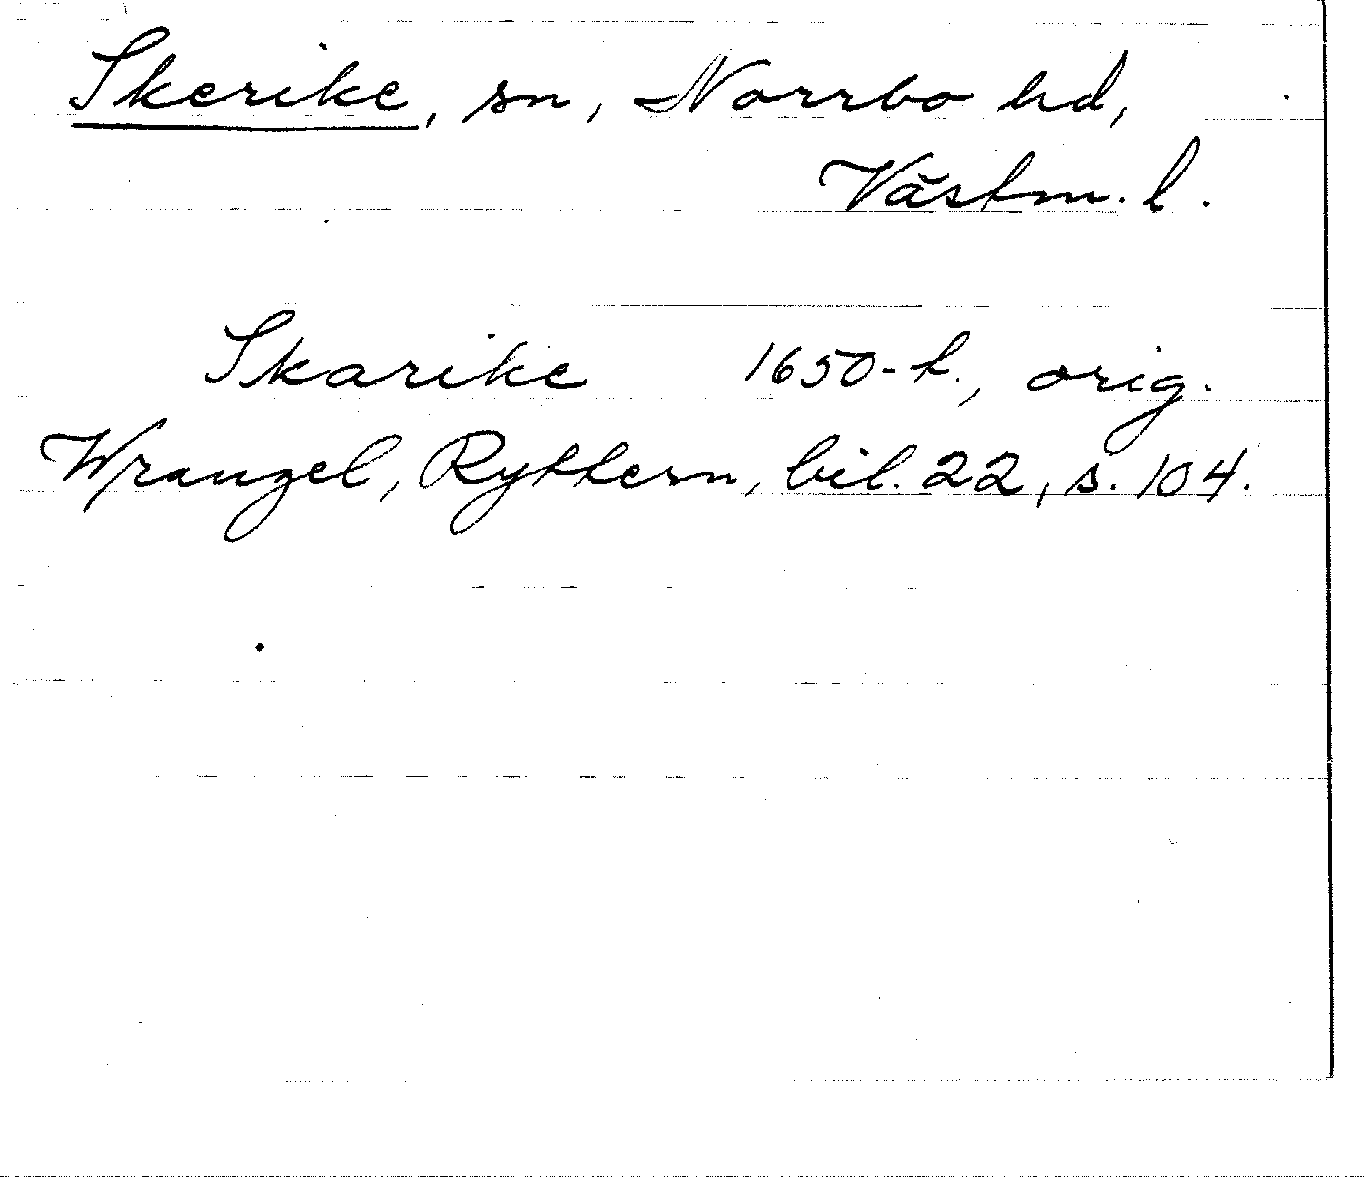 Skerike, sn, Norrbo hd,
Västm. l.
Skarike 1650-t., orig.
Wrangel, Ryttern, bil. 22, s. 104.